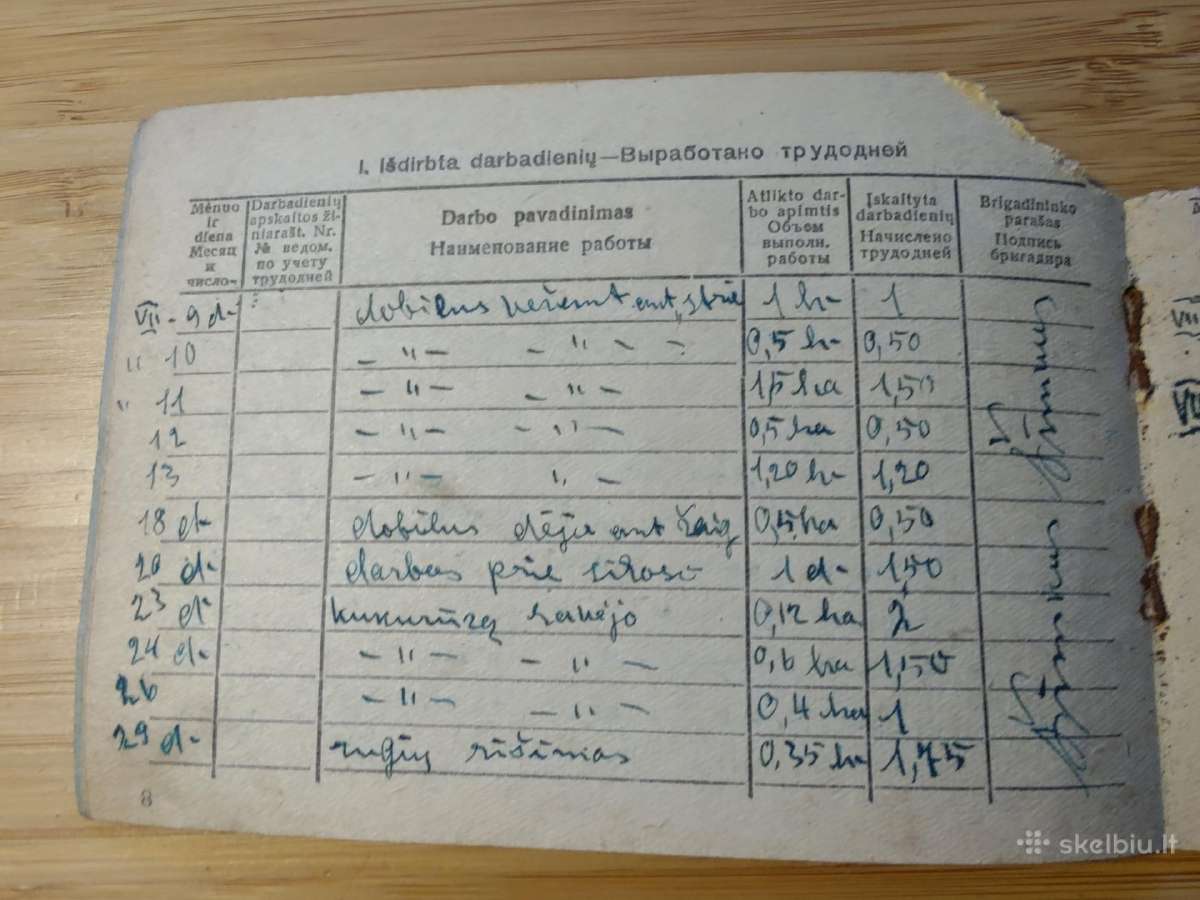 I. Išdirbta darbadienių—Выработано трудодней
Mėnuo ir diena Месяц и число-
Darbadienių apskaitos ži-niarašt. Nr. № ведом. по учету трудодней
Darbo pavadinimas Наименование работы
Atlikto dar-bo apimtis Объем выполн. работы
Įskaityta darbadienių Начислено трудодней
Brigadininko parašas Подпись бригадира
VII - 9 d- dobilus vežant ant 1 ha 1
" 10 - " - - " - - 0,5 ha 0,50
" 11 - " - - " - 1,5 ha 1,50
12 - " - - " - 0,5 ha 0,50
13 - " - " - 1,20 ha 1,20
18 d- dobilus dėjo ant žaig 0,5 ha 0,50
20 d- darbas prie siloso 1 d- 1,50
23 d kukurūzą ravėjo 0,12 ha 2
24 d- - " - - " - 0,6 ha 1,50
26 - " - - " - 0,4 ha 1
29 d- rugių rišimas 0,35 ha 1,75
8
skelbiu.lt